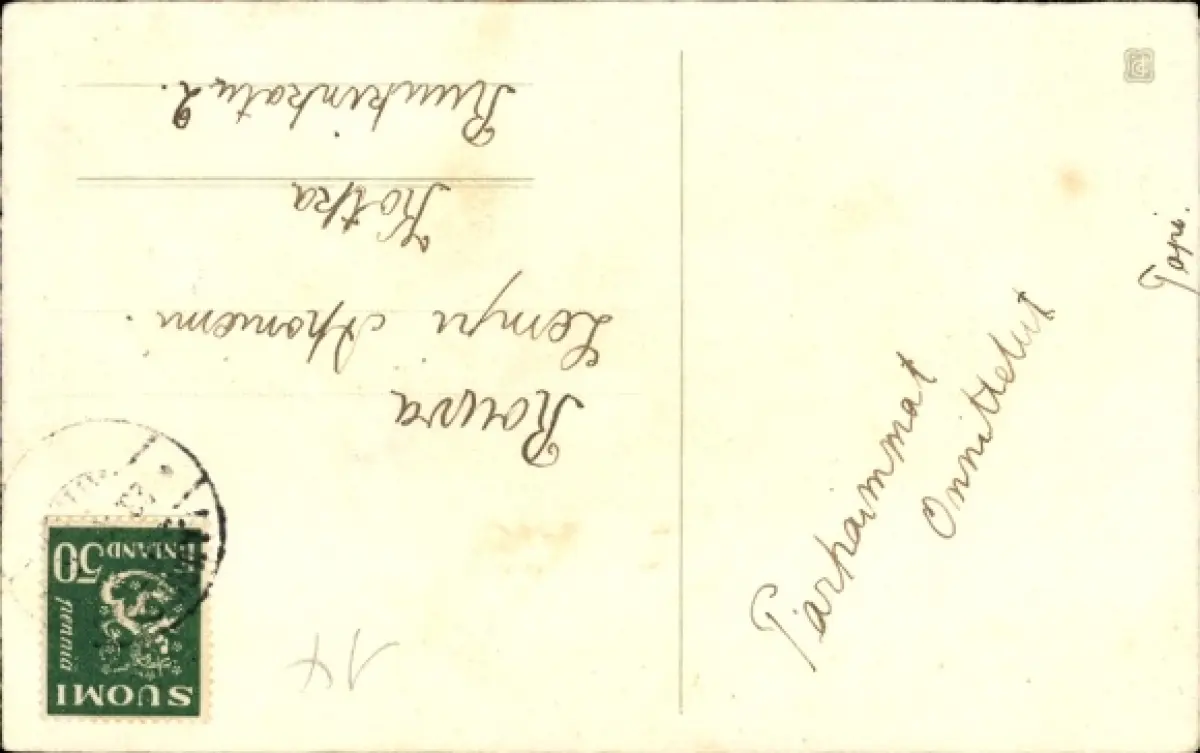 Rouva
Lempi Ahoniemi.
Kotka
Ruukinkatu 2.
Parhaimmat
Onnittelut
50
FINLAND
penniä
SUOMI
14